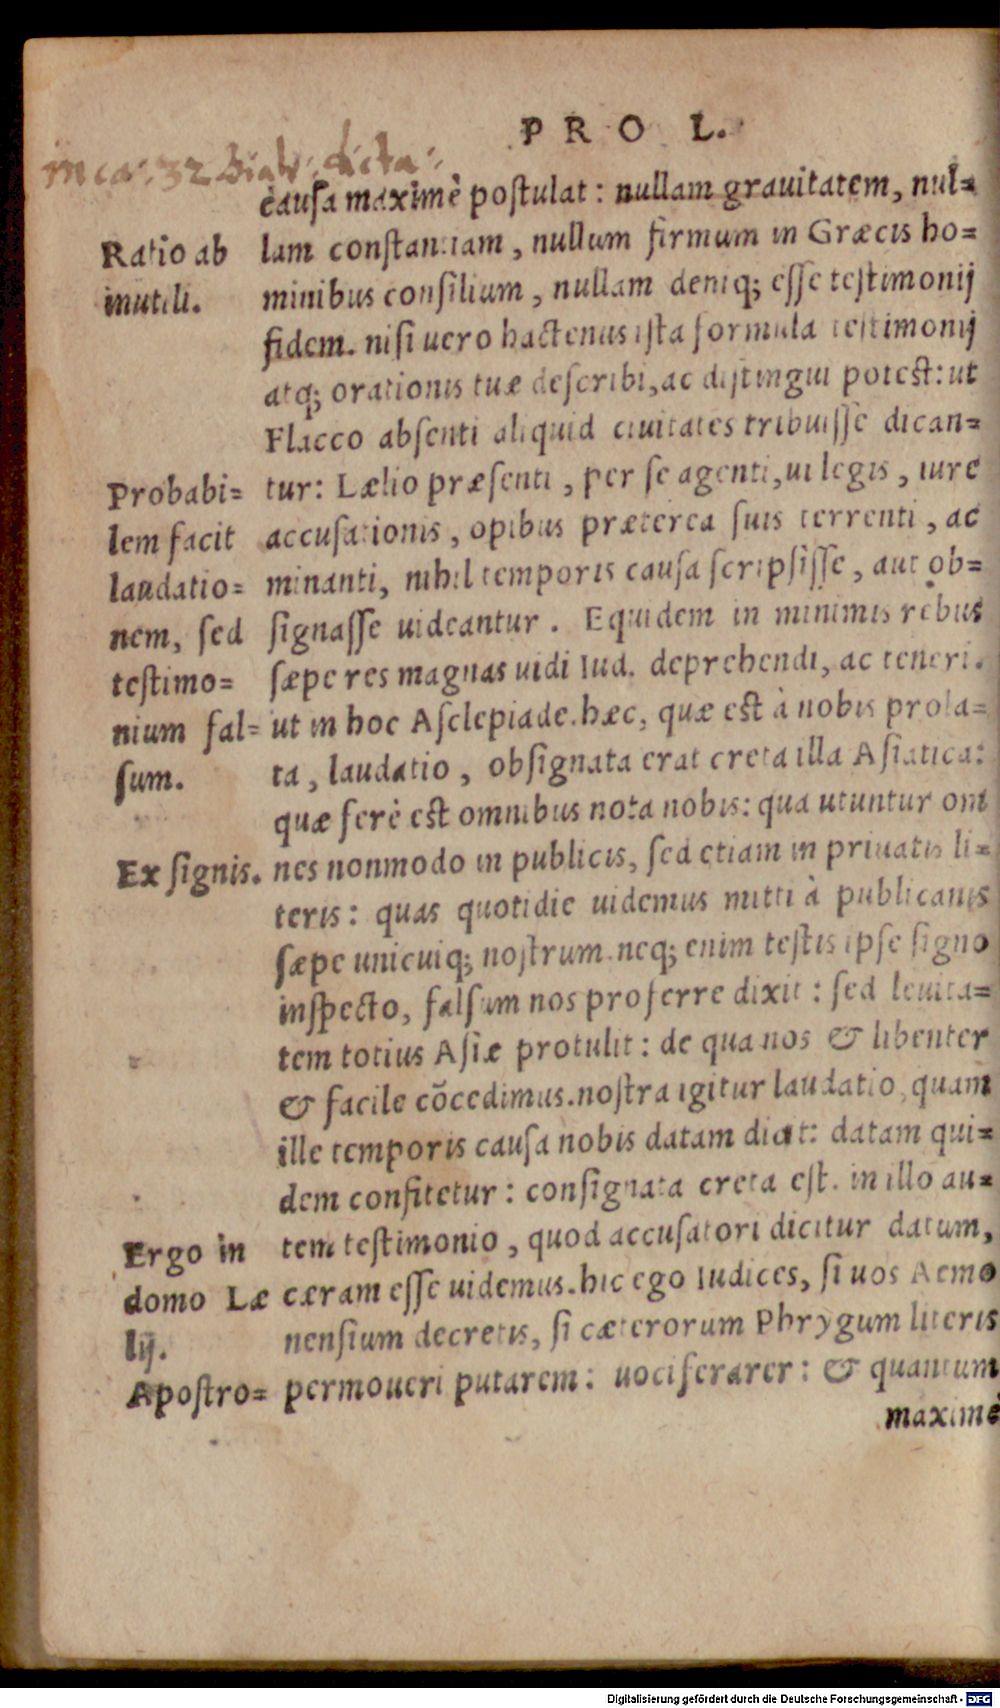 PRO L.
in ca: 32 dicta:
causa maximè postulat: nullam grauitatem, nul=
Ratio ab
inutili.
lam constantiam, nullum firmum in Græcis ho=
minibus consilium, nullam deniq; esse testimonij
fidem. nisi uero hactenus ista formula testimonij
atq; orationis tuæ describi, ac distingui potest: ut
Flacco absenti aliquid ciuitates tribuisse dican=
Probabi=
lem facit
laudatio=
nem, sed
testimo=
nium fal=
sum.
tur: Lælio præsenti, per se agenti, ui legis, iure
accusationis, opibus præterea suis terrenti, ac
minanti, nihil temporis causa scripsisse, aut ob=
signasse uideantur. Equidem in minimis rebus
sæpe res magnas uidi Iud. deprehendi, ac teneri.
ut in hoc Asclepiade. hæc, quæ est à nobis prola=
ta, laudatio, obsignata erat creta illa Asiatica:
quæ ferè est omnibus nota nobis: qua utuntur om
Ex signis.
nes nonmodo in publicis, sed etiam in priuatis li=
teris: quas quotidie uidemus mitti à publicanis
sæpe unicuiq; nostrum. neq; enim testis ipse signo
inspecto, falsum nos proferre dixit: sed leuita=
tem totius Asiæ protulit: de qua nos & libenter
& facile cõcedimus. nostra igitur laudatio, quam
ille temporis causa nobis datam dicit: datam qui=
dem confitetur: consignata creta est. in illo au=
Ergo in
domo Læ
lij.
Apostro=
tem testimonio, quod accusatori dicitur datum,
ceram esse uidemus. hic ego Iudices, si uos Aemo
nensium decretis, si cæterorum Phrygum literis
permoueri putarem: uociferarer: & quantum
maximè
Digitalisierung gefördert durch die Deutsche Forschungsgemeinschaft - DFG